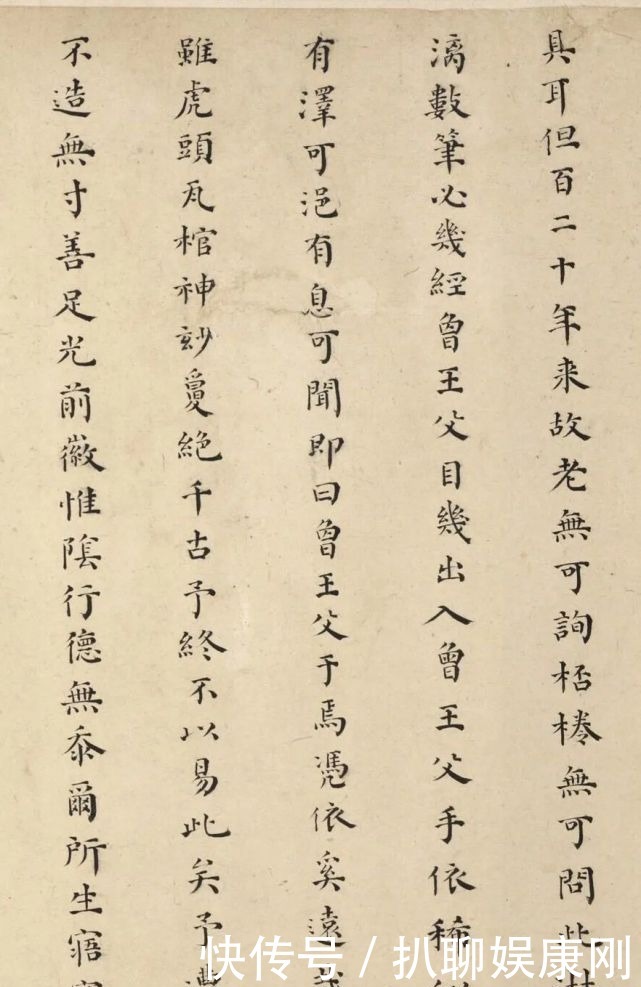 具耳但百二十年来故老無可詢桮棬無可問此
漓數筆必幾經曾王父目幾出入曾王父手依稀
有澤可浥有息可聞即曰曾王父于焉憑依奚遠
雖虎頭瓦棺神玅敻絕千古予終不以易此矣予
不造無寸善足光前徽惟陰行德無忝爾所生寤
快传号 / 扒聊娱康刚